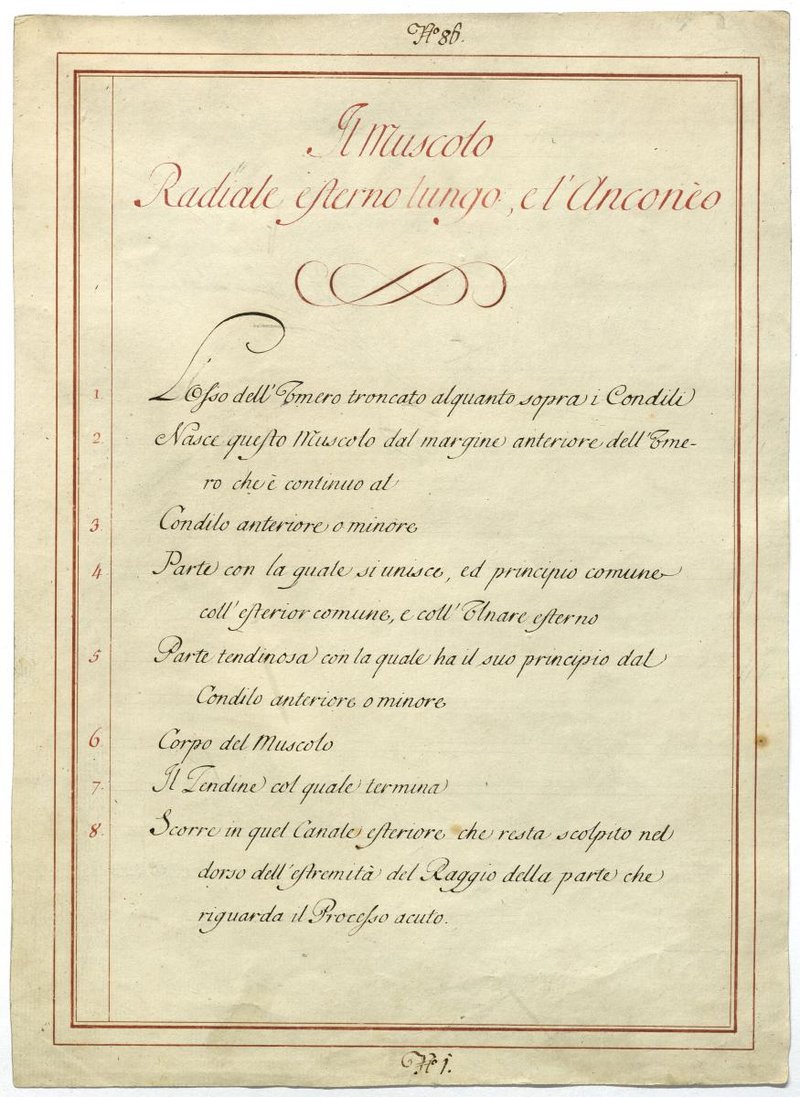 No 86.
Il Muscolo
Radiale esterno lungo, e l'Anconèo
1 L'Osso dell'Omero troncato alquanto sopra i Condili
2 Nasce questo Muscolo dal margine anteriore dell'Ome-
ro che è continuo al
3. Condilo anteriore o minore
4 Parte con la quale si unisce, ed principio comune
coll'esterior comune, e coll'Ulnare esterno
5 Parte tendinosa con la quale ha il suo principio dal
Condilo anteriore o minore
6 Corpo del Muscolo
7. Il Tendine col quale termina
8. Scorre in quel Canale esteriore che resta scolpito nel
dorso dell'estremità del Raggio della parte che
riguarda il Processo acuto.
No 1.